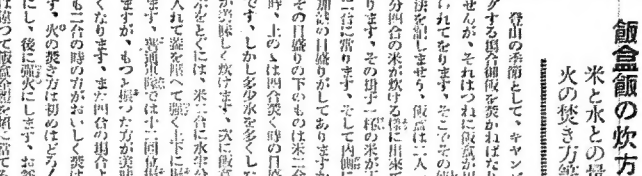 飯盒飯の炊方
米と水との
火の焚き方
登山の季節として、キヤン
グする場合御飯を炊かねばな
せんが、それはつねに飯盒が
られてをります。そこでその
決を記しませう、飯盒は二人
分四合の米が炊ける様に出來て
ります。その掛子一杯の米が
二合に當ります。そして内側に
加減の目盛りがしてあります
その目盛りの下のものは米二合
時、上のは四合炊く時の目盛
です。しかし多少水を多くし
が美味しく炊けます。次に飯盒
米をとぐには、米二合に水半分
入れて蓋を取つて強く上下に振
ます。普通は十二回位振
ますが、もつと振つた方が美味
くなります。また四合の場合よ
も二合の時の方がおいしく炊け
す。火の焚き方は初めはどろ
にし、後に強火にします。お
は隨つて飯盒全體を火に當てる